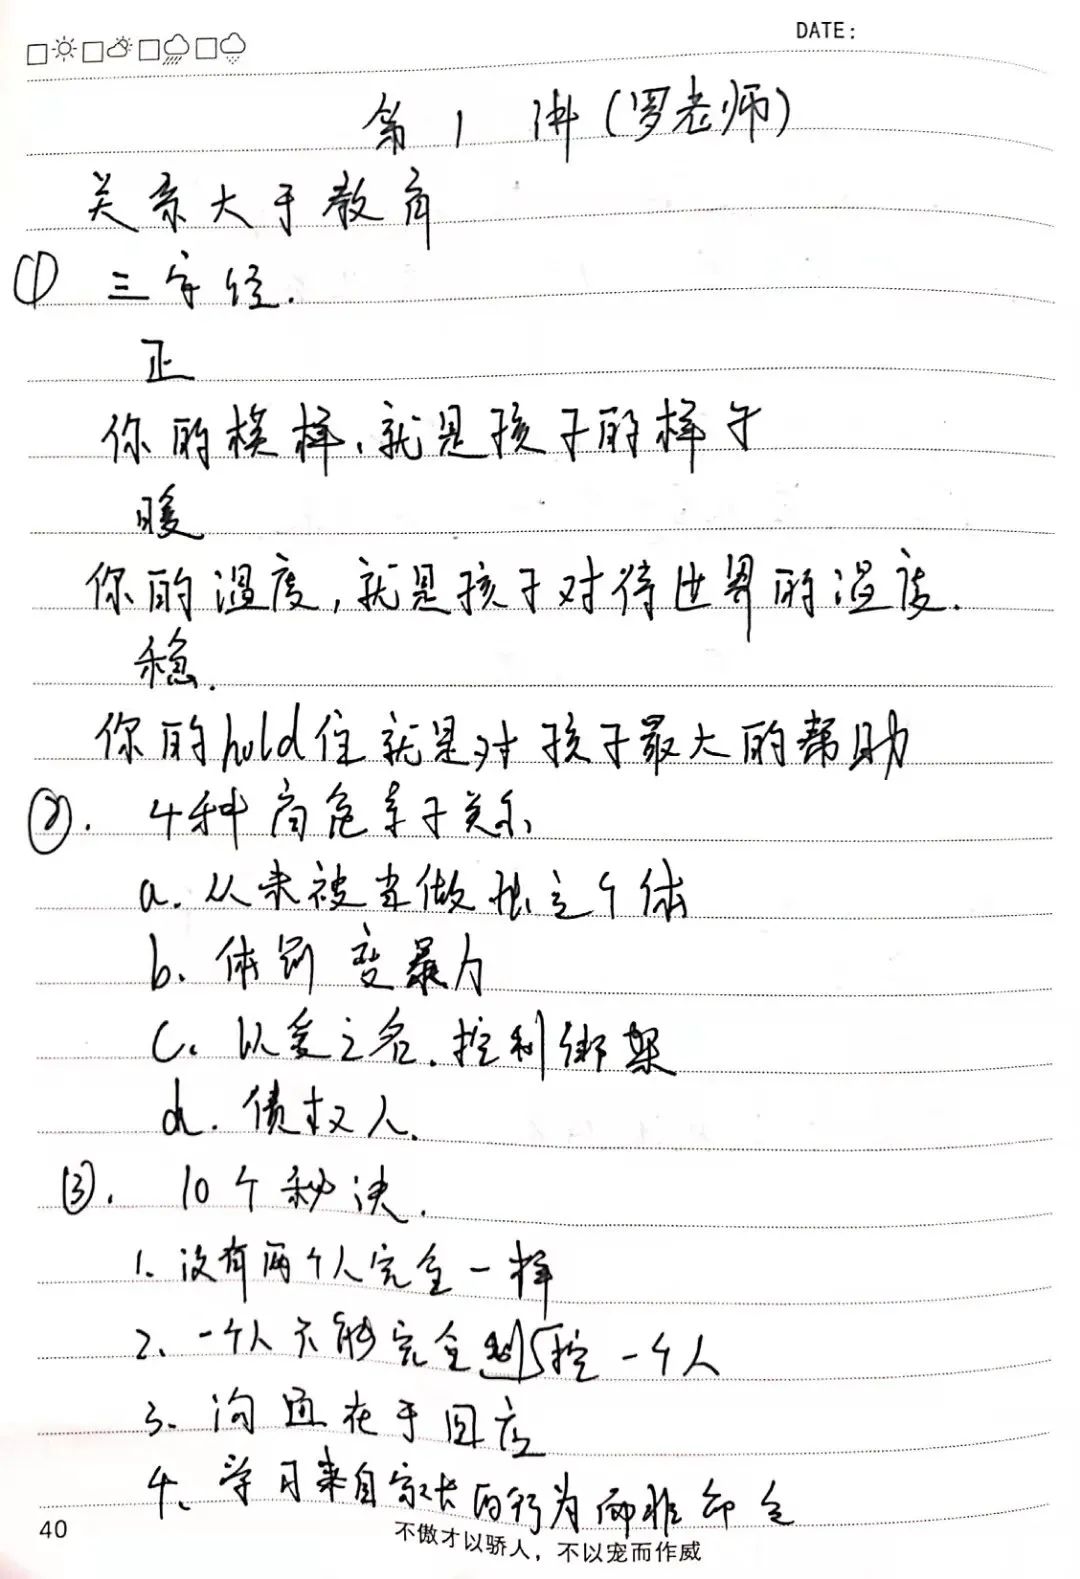 DATE:
第 1 讲 (罗老师)
关系大于教育
① 三字经.
正
你的模样,就是孩子的样子
暖
你的温度,就是孩子对待世界的温度.
稳.
你的hold住就是对孩子最大的帮助
②. 4种高危亲子关系
a. 从未被当做独立个体
b. 体罚 变暴力
c. 以爱之名.控制绑架
d. 债权人.
③. 10个秘诀.
1. 没有两个人完全一样
2. 一个人不能完全控一个人
3. 沟通在于回应
4. 学习来自家长的行为而非命令
40
不傲才以骄人，不以宠而作威